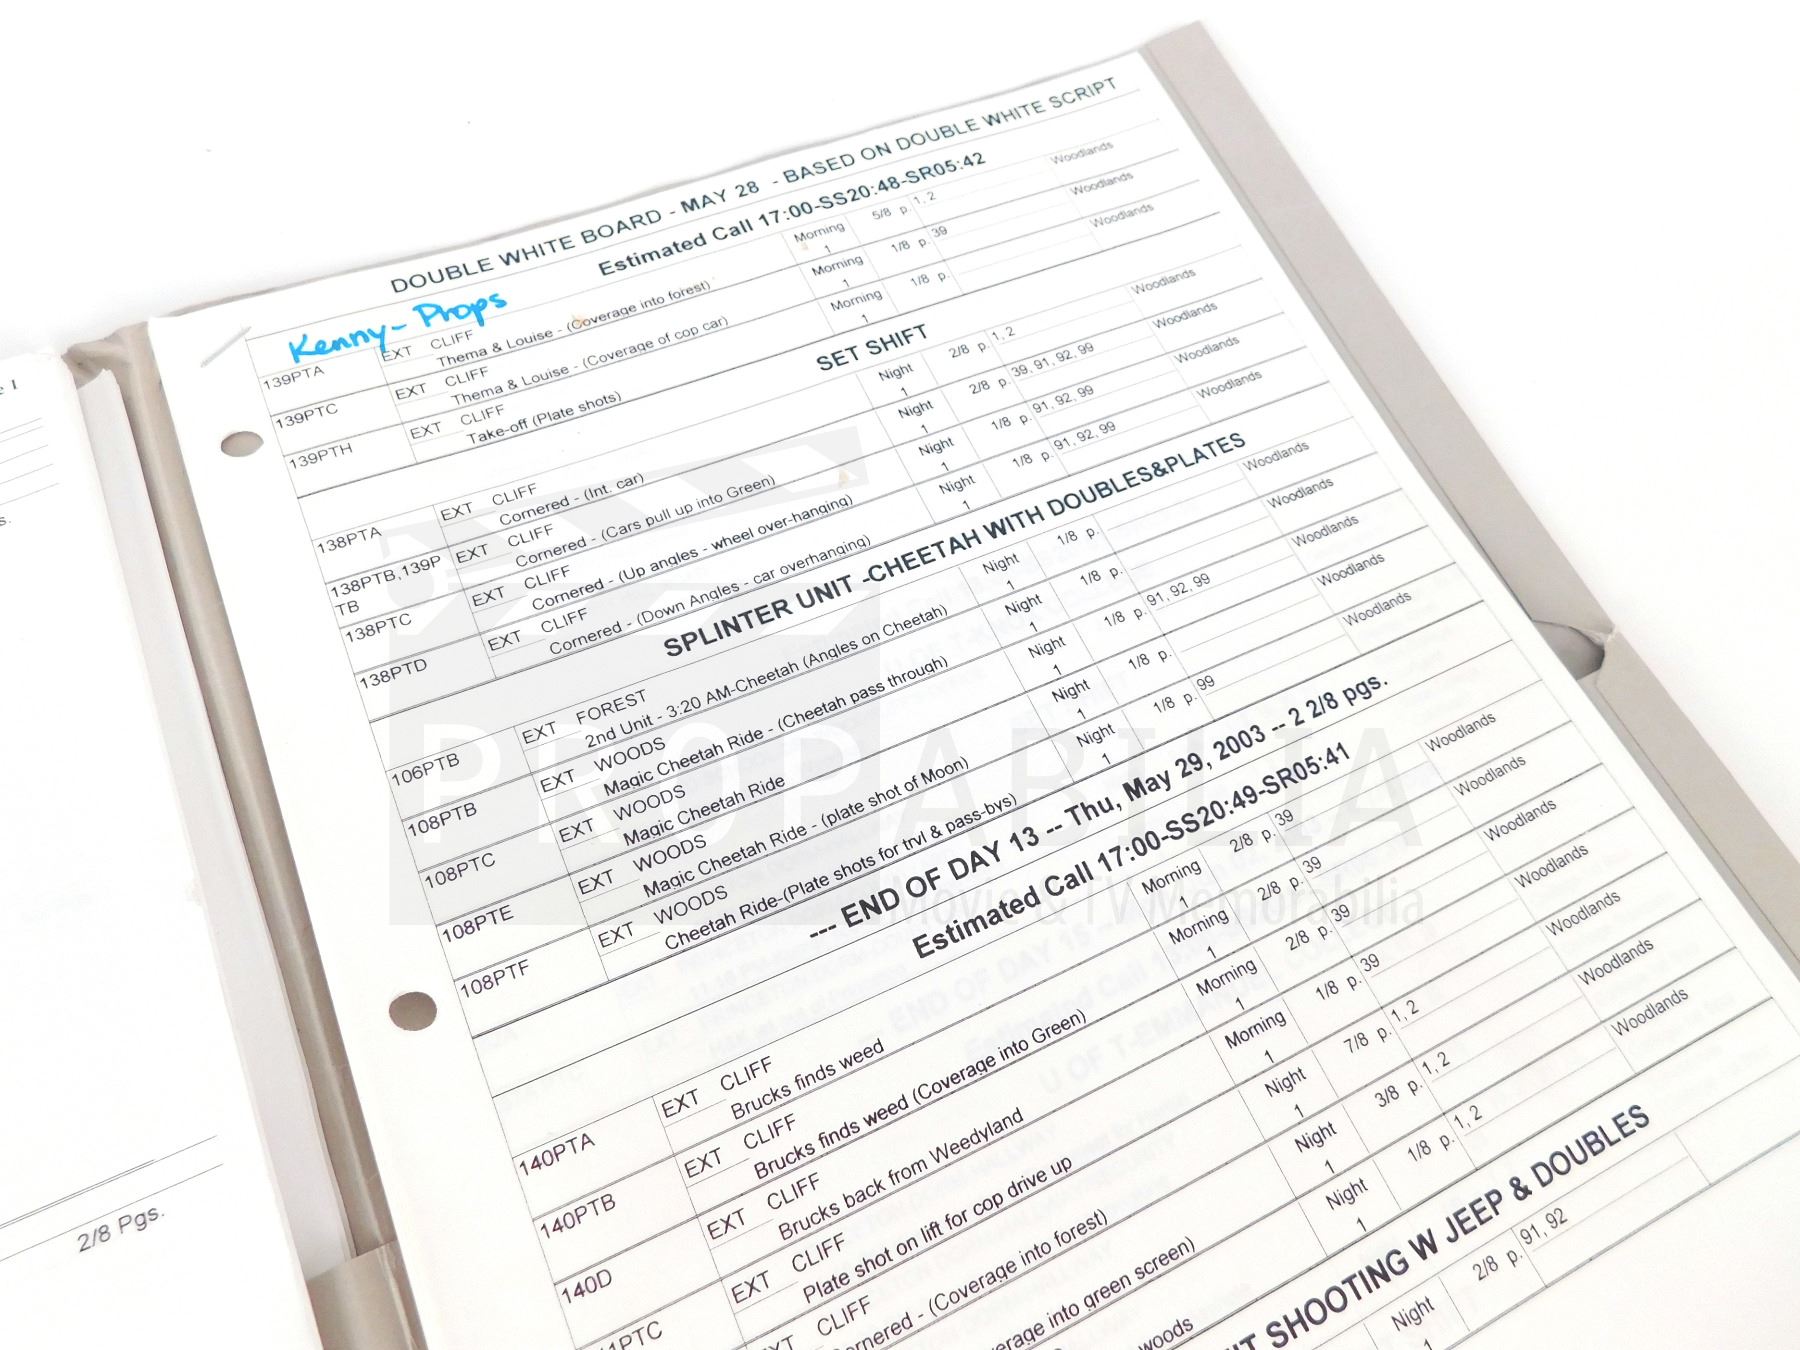 DOUBLE WHITE BOARD - MAY 28 - BASED ON DOUBLE WHITE SCRIPT
Estimated Call 17:00-SS20:48-SR05:42
Kenny - Props
139PTA EXT CLIFF Morning 5/8 p. 1, 2 Woodlands
Thema & Louise - (Coverage into forest) 1
139PTC EXT CLIFF Morning 1/8 p. 39 Woodlands
Thema & Louise - (Coverage of cop car) 1
139PTH EXT CLIFF Morning 1/8 p. Woodlands
Take-off (Plate shots) 1
SET SHIFT
138PTA EXT CLIFF Night 2/8 p. 1, 2 Woodlands
Cornered - (Int. car) 1
138PTB,139P EXT CLIFF Night 2/8 p. 39, 91, 92, 99 Woodlands
TB Cornered - (Cars pull up into Green) 1
138PTC EXT CLIFF Night 1/8 p. 91, 92, 99 Woodlands
Cornered - (Up angles - wheel over-hanging) 1
138PTD EXT CLIFF Night 1/8 p. 91, 92, 99 Woodlands
Cornered - (Down Angles - car overhanging) 1
SPLINTER UNIT -CHEETAH WITH DOUBLES&PLATES
106PTB EXT FOREST Night 1/8 p. Woodlands
2nd Unit - 3:20 AM-Cheetah (Angles on Cheetah) 1
108PTB EXT WOODS Night 1/8 p. Woodlands
Magic Cheetah Ride - (Cheetah pass through) 1
108PTC EXT WOODS Night 1/8 p. 91, 92, 99 Woodlands
Magic Cheetah Ride 1
108PTE EXT WOODS Night 1/8 p. Woodlands
Magic Cheetah Ride - (plate shot of Moon) 1
108PTF EXT WOODS Night 1/8 p. 99 Woodlands
Cheetah Ride-(Plate shots for trvl & pass-bys) 1
--- END OF DAY 13 -- Thu, May 29, 2003 -- 2 2/8 pgs.
Estimated Call 17:00-SS20:49-SR05:41
140PTA EXT CLIFF Morning 2/8 p. 39 Woodlands
Brucks finds weed 1
140PTB EXT CLIFF Morning 2/8 p. 39 Woodlands
Brucks finds weed (Coverage into Green) 1
140D EXT CLIFF Morning 2/8 p. 39 Woodlands
Brucks back from Weedyland 1
1PTC EXT CLIFF Morning 1/8 p. 39 Woodlands
Plate shot on lift for cop drive up 1
XT CLIFF Night 7/8 p. 1, 2 Woodlands
ornered - (Coverage into forest) 1
Night 3/8 p. 1, 2 Woodlands
erage into green screen) 1
Night 1/8 p. 1, 2 Woodlands
woods 1
IT SHOOTING W JEEP & DOUBLES
Night 2/8 p. 91, 92
1
e 1
s.
2/8 Pgs.
PROPABILIA
Movie & TV Memorabilia